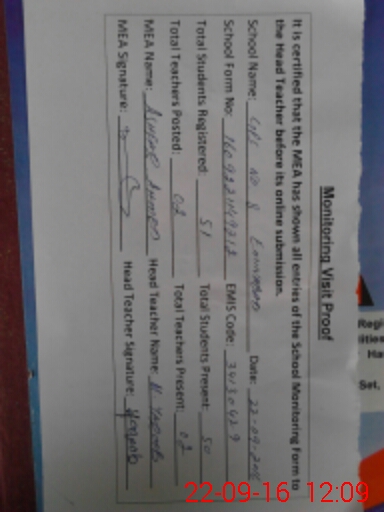 Monitoring Visit Proof
It is certified that the MEA has shown all entries of the School Monitoring Form to
the Head Teacher before its online submission.
School Name: GPS No 8 Date: 22-09-2016
School Form No: EMIS Code:
Total Students Registered: 51 Total Students Present: 50
Total Teachers Posted: 02 Total Teachers Present: 02
MEA Name: Head Teacher Name:
MEA Signature: Head Teacher Signature:
Regi
ities
Ha
Set,
22-09-16 12:09